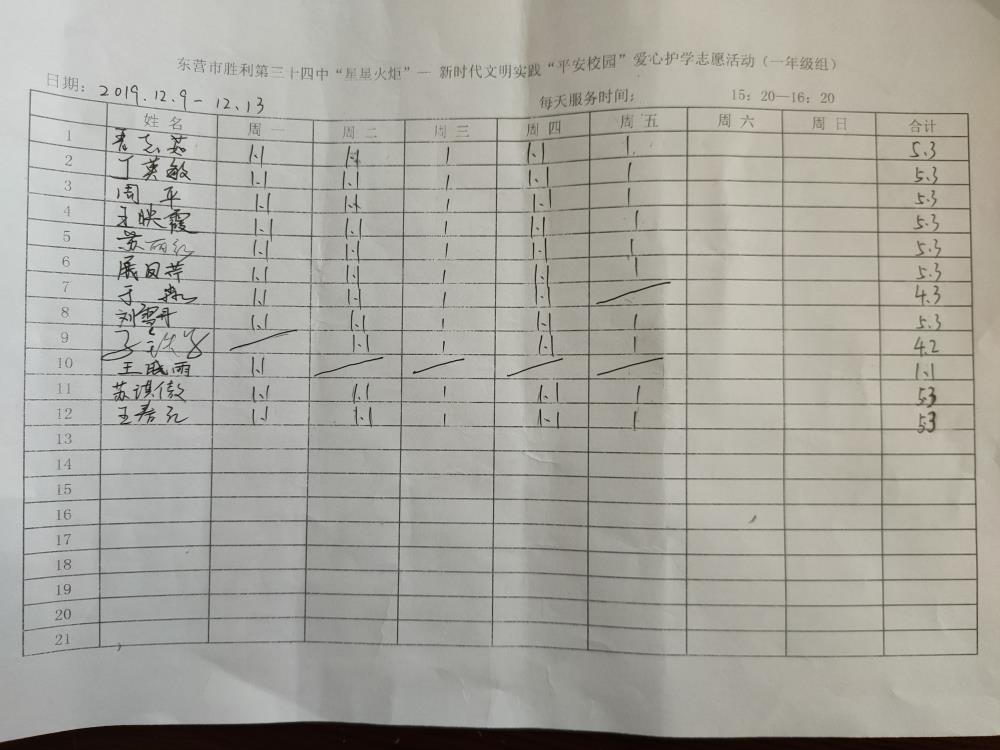 东营市胜利第三十四中“星星火炬”— 新时代文明实践“平安校园”爱心护学志愿活动（一年级组）
日期：2019.12.9-12.13 每天服务时间： 15：20—16：20
姓名 周一 周二 周三 周四 周五 周六 周日 合计
1 1.1 1.1 1 1.1 1 5.3
2 丁英敏 1.1 1.1 1 1.1 1 5.3
3 周平 1.1 1.1 1 1.1 1 5.3
4 王映霞 1.1 1.1 1 1.1 1 5.3
5 苏丽红 1.1 1.1 1 1.1 1 5.3
6 展凤萍 1.1 1.1 1 1.1 1 5.3
7 于 1.1 1.1 1 1.1 / 4.3
8 刘雪丹 1.1 1.1 1 1.1 1 5.3
9 / 1.1 1 1.1 1 4.2
10 王晓雨 1.1 / / / / 1.1
11 苏淇傲 1.1 1.1 1 1.1 1 53
12 王春 1.1 1.1 1 1.1 1 53
13
14
15
16
17
18
19
20
21